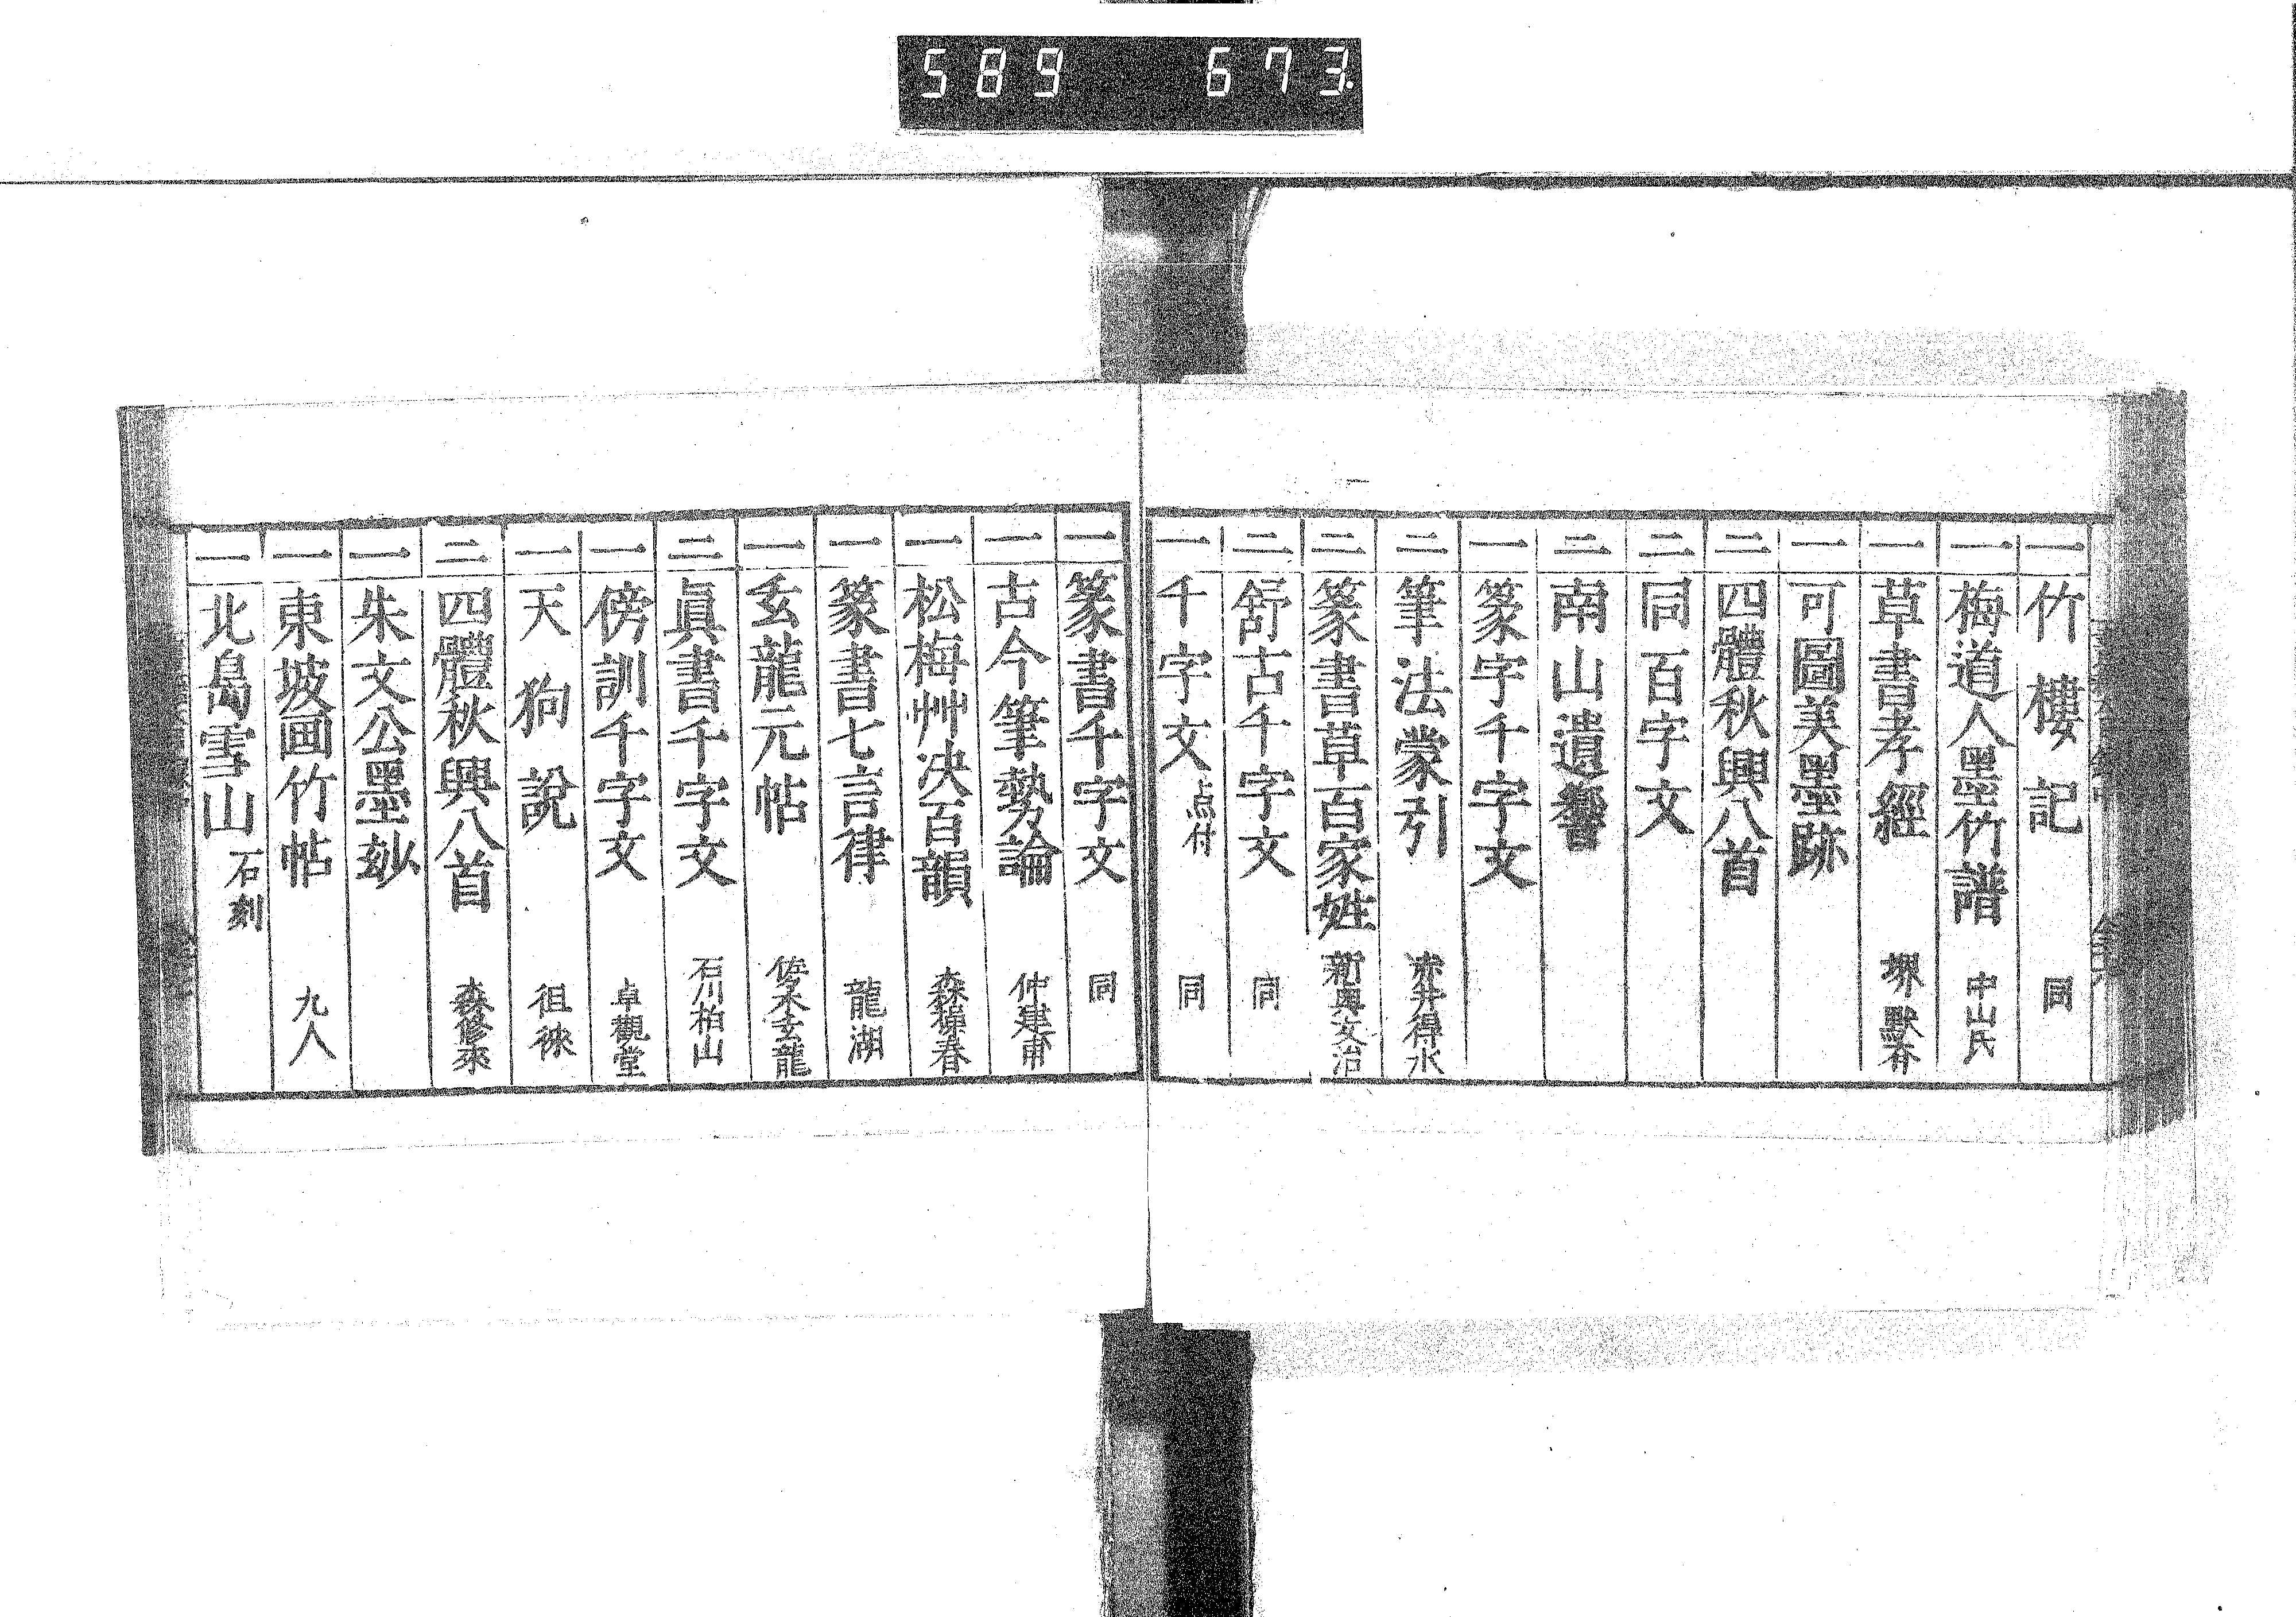 589 673
一 竹樓記 同
一 梅道人墨竹譜 中山氏
一 草書孝經 堺 默斎
一 可圖美墨跡
二 四體秋興八首
二 同百字文
二 南山遺響
一 篆字千字文
二 筆法蒙引 赤井得水
二 篆書草百家姓 新興文治
二 舒古千字文 同
一 千字文 点付 同
一 篆書千字文 同
一 古今筆勢論 仲建甫
一 松梅艸决百韻 森棹春
一 篆書七言律 龍湖
一 玄龍元帖 佐々木玄龍
二 眞書千字文 石川柏山
一 傍訓千字文 卓觀堂
一 天狗說 徂徠
二 四體秋興八首 森修來
一 朱文公墨玅
一 東坡画竹帖 九人
一 北島雪山 石刻